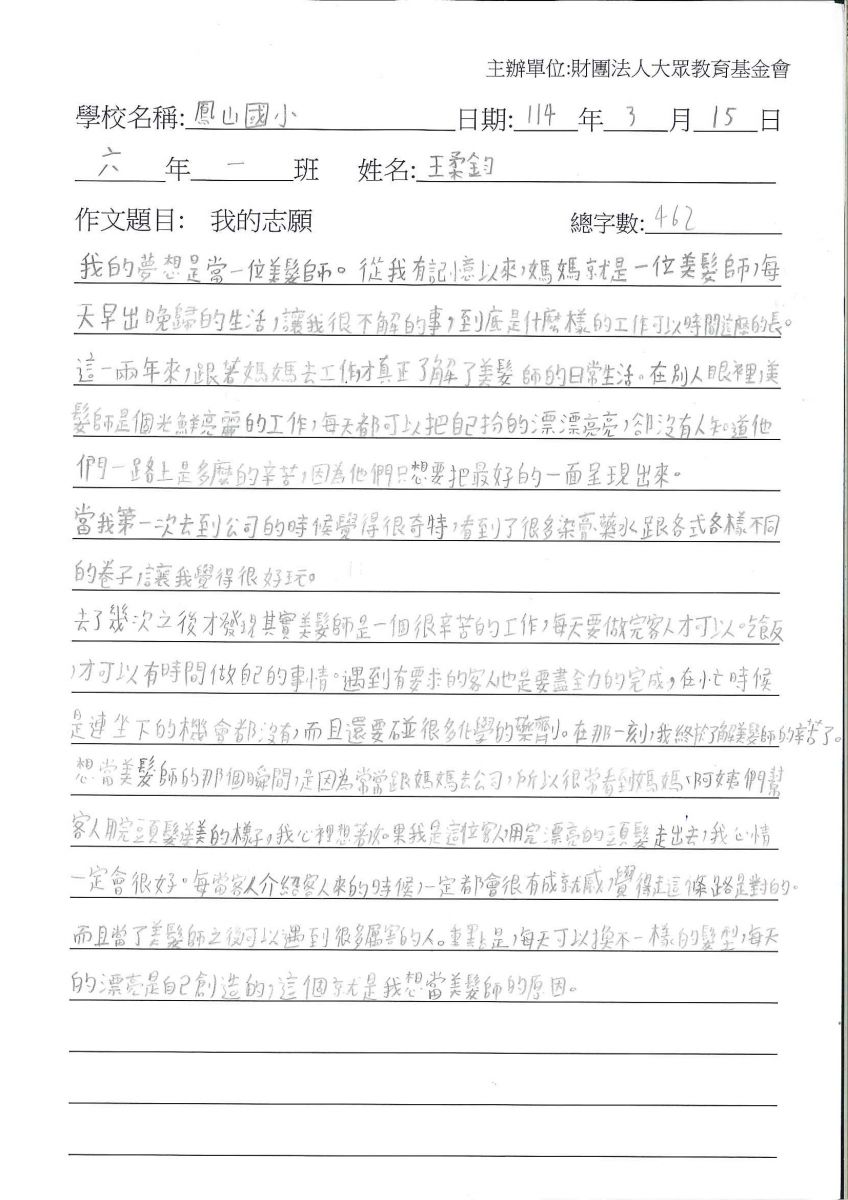 主辦單位:財團法人大眾教育基金會
學校名稱:鳳山國小 日期:114年3月15日
六年一班 姓名:王柔鈞
作文題目: 我的志願 總字數:462
我的夢想是當一位美髮師。從我有記憶以來,媽媽就是一位美髮師,每
天早出晚歸的生活,讓我很不解的事,到底是什麼樣的工作可以時間這麼的長。
這一兩年來,跟著媽媽去工作才真正了解了美髮師的日常生活。在別人眼裡,美
髮師是個光鮮亮麗的工作,每天都可以把自己扮的漂漂亮亮,卻沒有人知道他
們一路上是多麼的辛苦,因為他們只想要把最好的一面呈現出來。
當我第一次去到公司的時候覺得很奇特,看到了很多染膏、藥水跟各式各樣不同
的卷子,讓我覺得很好玩。
去了幾次之後才發現其實美髮師是一個很辛苦的工作,每天要做完客人才可以。吃飯
,才可以有時間做自己的事情。遇到有要求的客人也是要盡全力的完成,在忙時候
是連坐下的機會都沒有,而且還要碰很多化學的藥劑。在那一刻,我終於了解美髮師的辛苦了。
想當美髮師的那個瞬間,是因為常常跟媽媽去公司,所以很常看到媽媽、阿姨們幫
客人用完頭髮美美的樣子,我心裡想著如果我是這位客人,用完漂亮的頭髮走出去,我心情
一定會很好。每當客人介紹客人來的時候,一定都會很有成就感,覺得走這條路是對的。
而且當了美髮師之後可以遇到很多厲害的人。重點是,每天可以換不一樣的髮型,每天
的漂亮是自己創造的,這個就是我想當美髮師的原因。